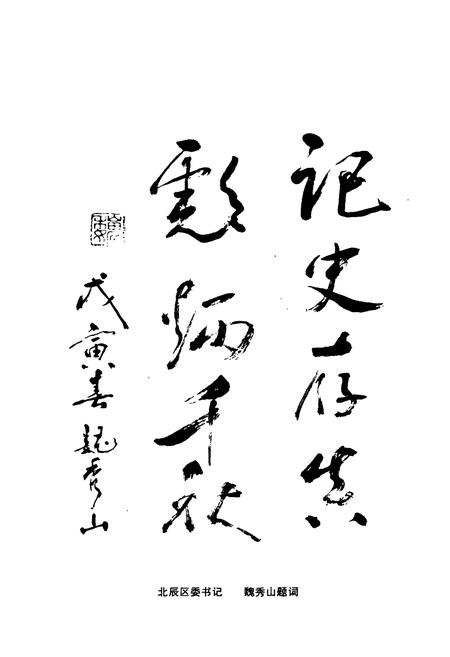 记史存真
彪炳千秋
戊寅春 魏秀山
北辰区委书记 魏秀山题词